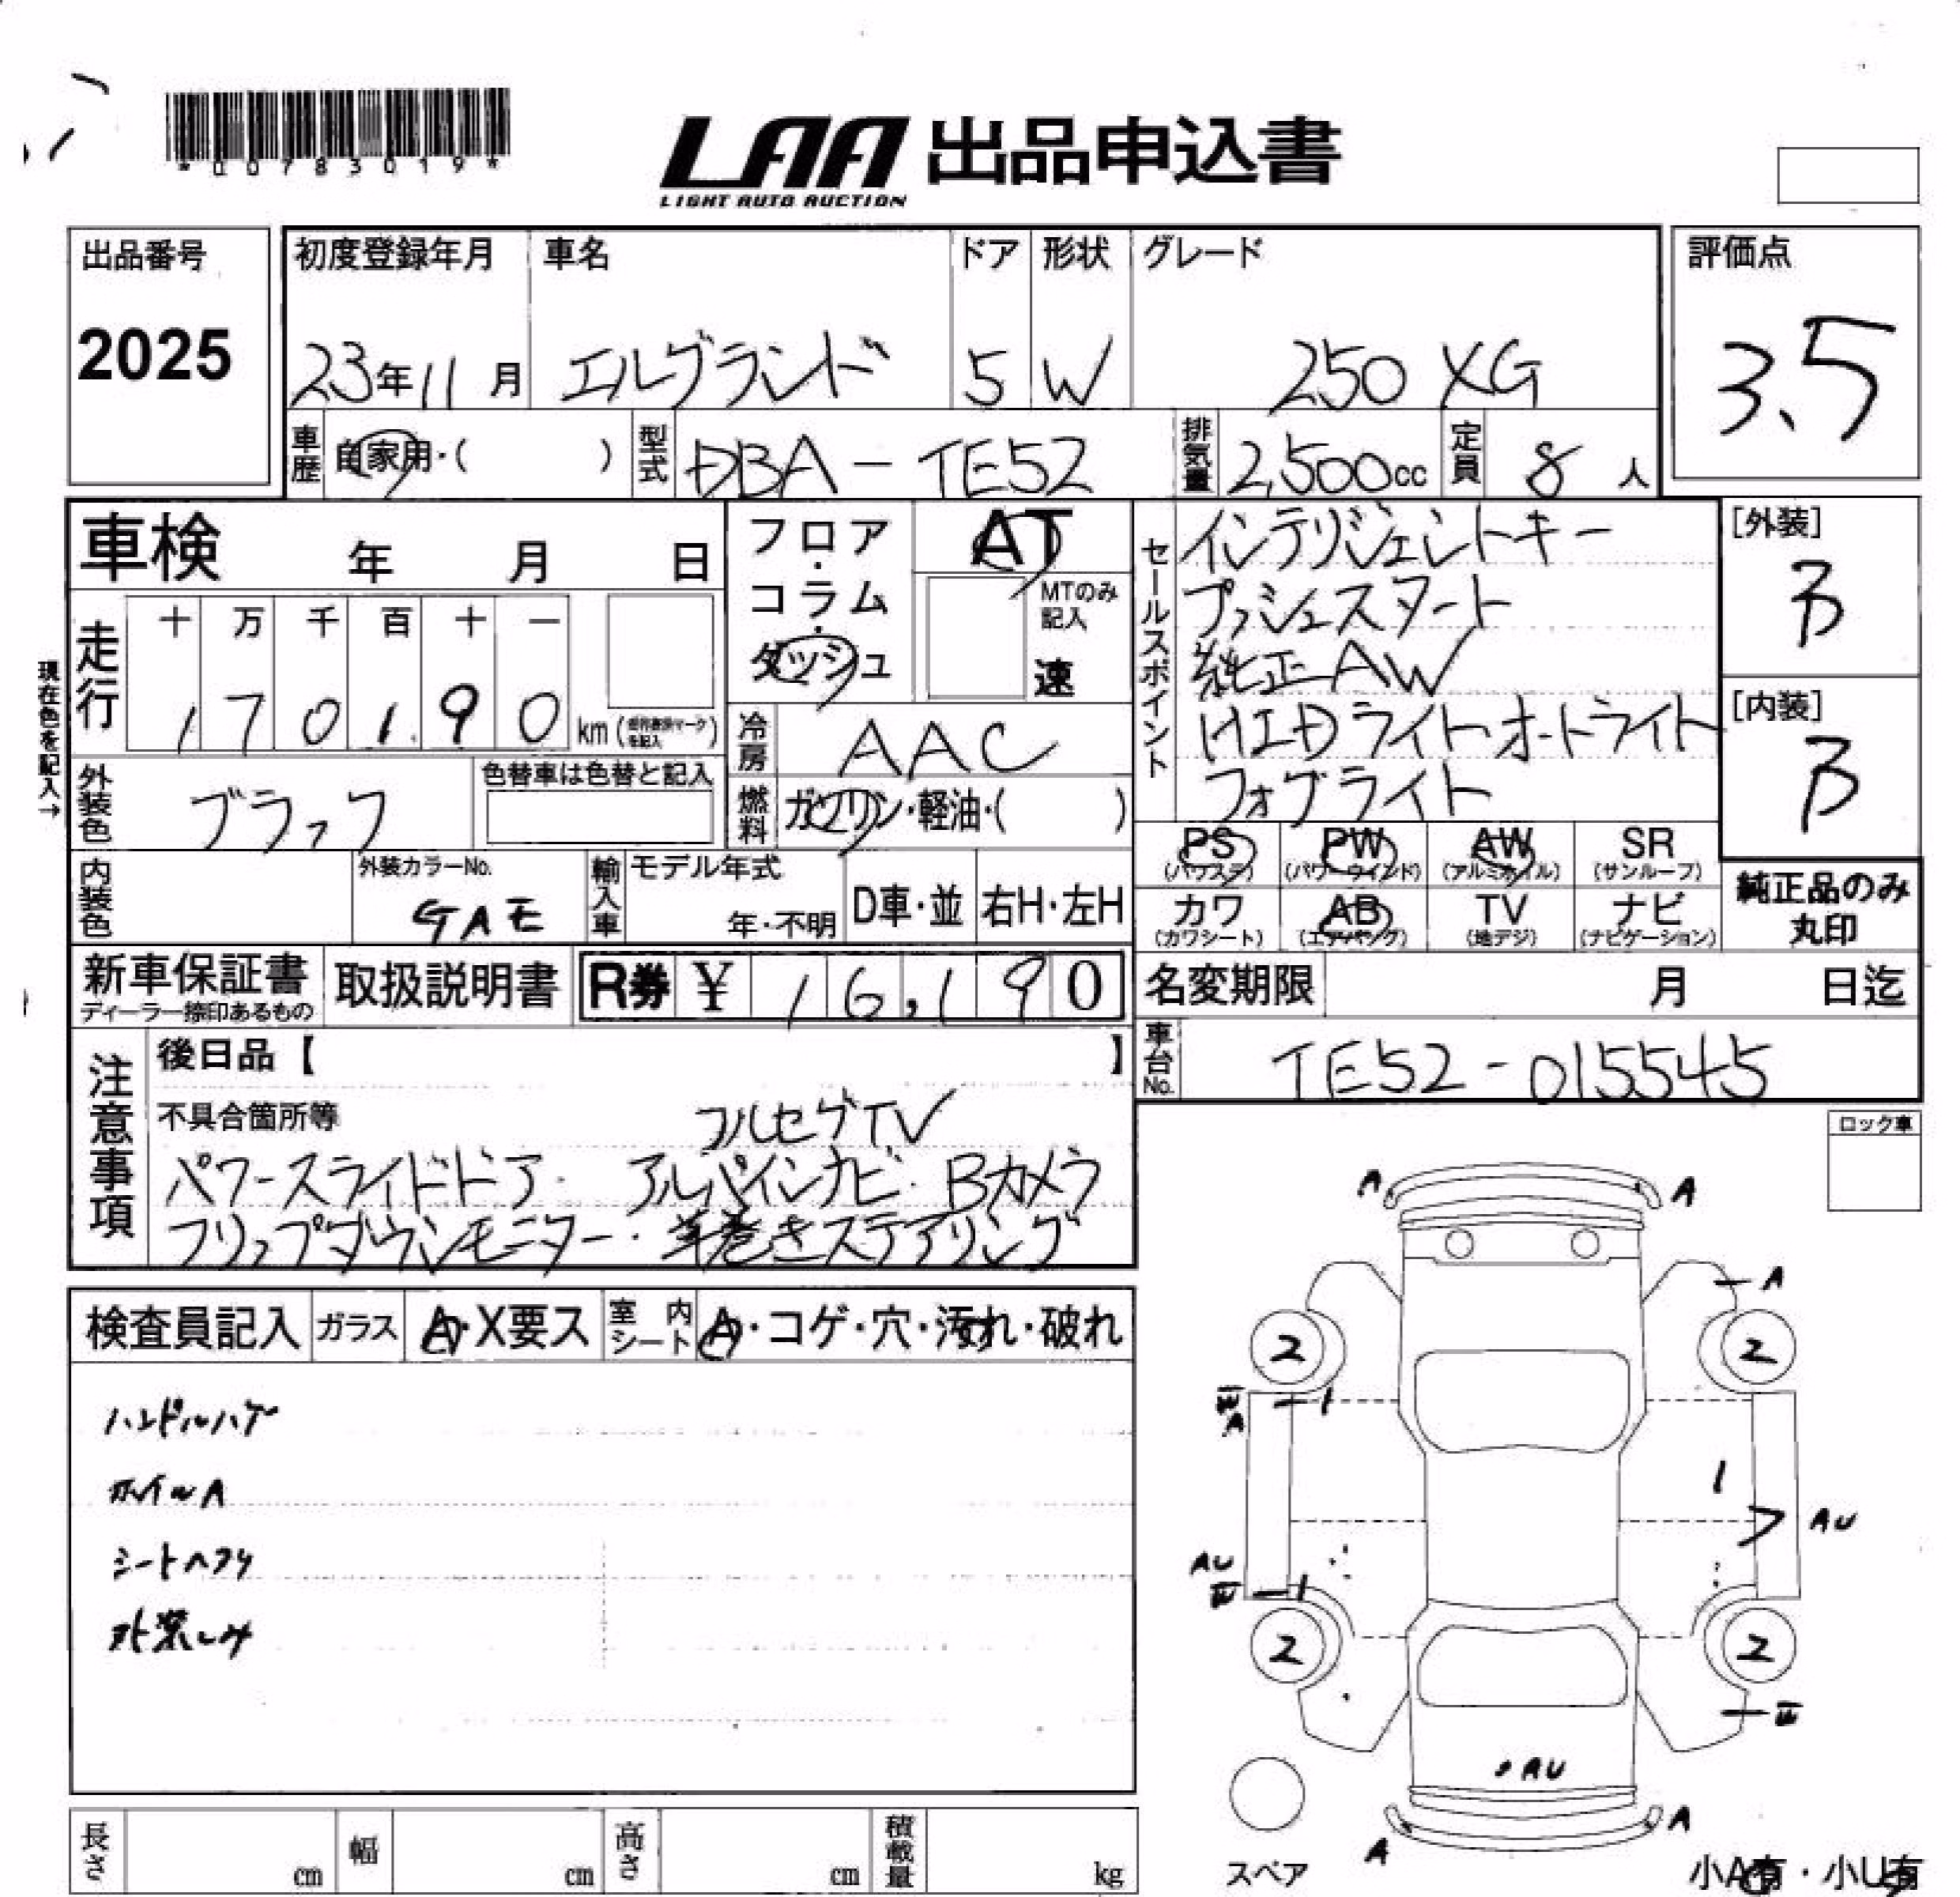 *00783019*
LAA 出品申込書
LIGHT AUTO AUCTION
出品番号
2025
初度登録年月 車名 ドア 形状 グレード 評価点
23年11月 エルグランド 5 W 250 XG 3.5
車歴 自家用・( ) 型式 DBA-TE52 排気量 2,500cc 定員 8人
車検 年 月 日
フロア・コラム・ダッシュ
AT
MTのみ記入
速
セールスポイント
インテリジェントキー
プッシュスタート
純正AW
HIDライトオートライト
フォグライト
[外装]
B
[内装]
B
現在色を記入→
走行 十 万 千 百 十 一
170190 km (
を記入)
冷房 AAC
外装色 ブラック 色替車は色替と記入
燃料 ガソリン・軽油・( )
PS PW AW SR
(パワステ) (パワーウインド) (アルミホイル) (サンルーフ)
カワ AB TV ナビ
(カワシート) (エアバッグ) (地デジ) (ナビゲーション)
純正品のみ
丸印
内装色 外装カラーNo. GAE 輸入車 モデル年式 年・不明 D車・並 右H・左H
新車保証書 取扱説明書 R券 ¥ 16,190
ディーラー捺印あるもの
名変期限 月 日迄
車台No. TE52-015545
注意事項
後日品【 】
不具合箇所等 フルセグTV
パワースライドドア・ アルパインナビ・Bカメラ
フリップダウンモニター・羊巻きステアリング
ロック車
検査員記入 ガラス A・X要ス 室内シート A・コゲ・穴・汚れ・破れ
ハンドルハゲ
ホイルA
シートヘタリ
外装しみ
A A
A
2 2
A
1
1
AU
AU
1
2 2
AU
A
A
スペア
小A有・小U有
長さ cm 幅 cm 高さ cm 積載量 kg